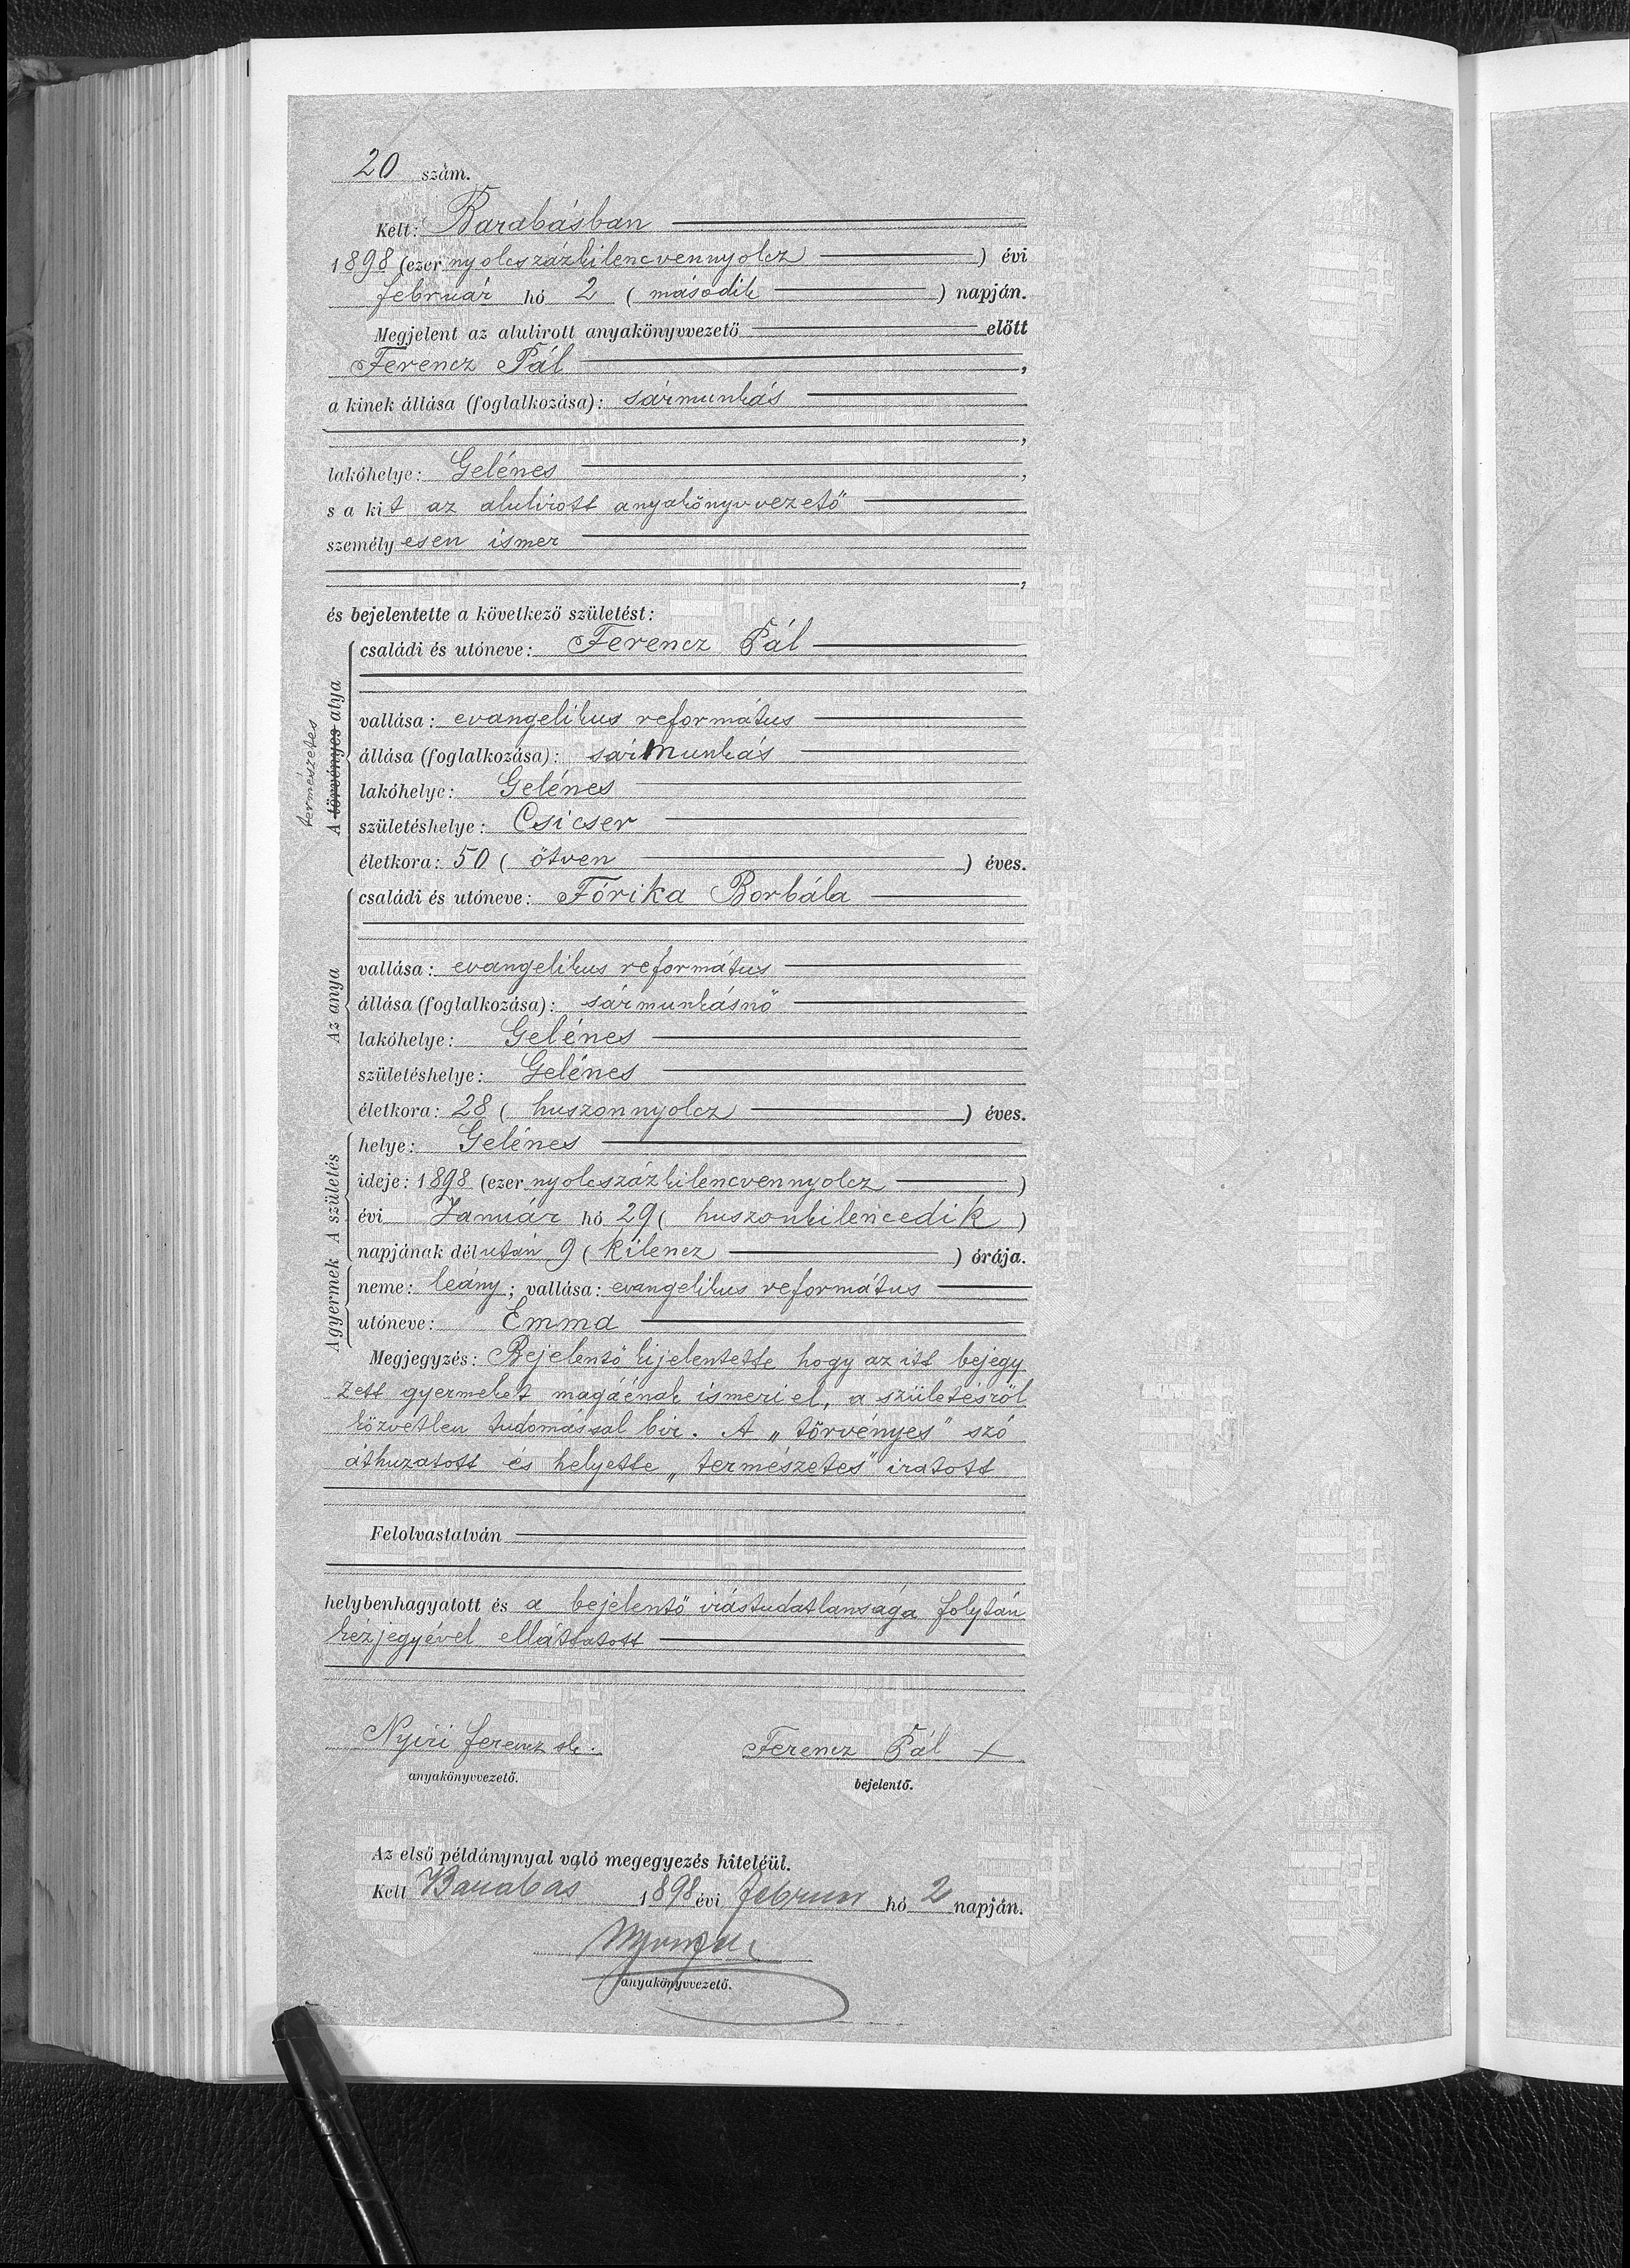 20 szám.
Kelt: Barabásban
1898 (ezer nyolcszázkilencvennyolcz) évi
február hó 2 (második) napján.
Megjelent az alulirott anyakönyvvezető előtt
Ferencz Pál,
a kinek állása (foglalkozása): sármunkás
,
lakóhelye: Gelénes,
s a kit az alulirott anyakönyvvezető
személyesen ismer
,
és bejelentette a következő születést:
A törvényes atya
természetes
családi és utóneve: Ferencz Pál
vallása: evangelikus református
állása (foglalkozása): sármunkás
lakóhelye: Gelénes
születéshelye: Csicser
életkora: 50 (ötven) éves.
Az anya
családi és utóneve: Fórika Borbála
vallása: evangelikus református
állása (foglalkozása): sármunkásnő
lakóhelye: Gelénes
születéshelye: Gelénes
életkora: 28 (huszonnyolcz) éves.
A születés
helye: Gelénes
ideje: 1898 (ezer nyolcszázkilencvennyolcz)
évi Január hó 29 (huszonkilencedik)
napjának délután 9 (kilencz) órája.
A gyermek
neme: leány; vallása: evangelikus református
utóneve: Emma
Megjegyzés: Bejelentő kijelentette hogy az itt bejegy
zett gyermeket magáénak ismeri el, a születésről
közvetlen tudomással bir. A „törvényes" szó
áthuzatott és helyette „természetes" iratott
Felolvastatván
helybenhagyatott és a bejelentő irástudatlansága folytán
kézjegyével elláttatott
Nyiri ferencz sk. Ferencz Pál X
anyakönyvvezető. bejelentő.
Az első példánynyal való megegyezés hiteléül.
Kelt Barabás 1898 évi február hó 2 napján.
anyakönyvvezető.